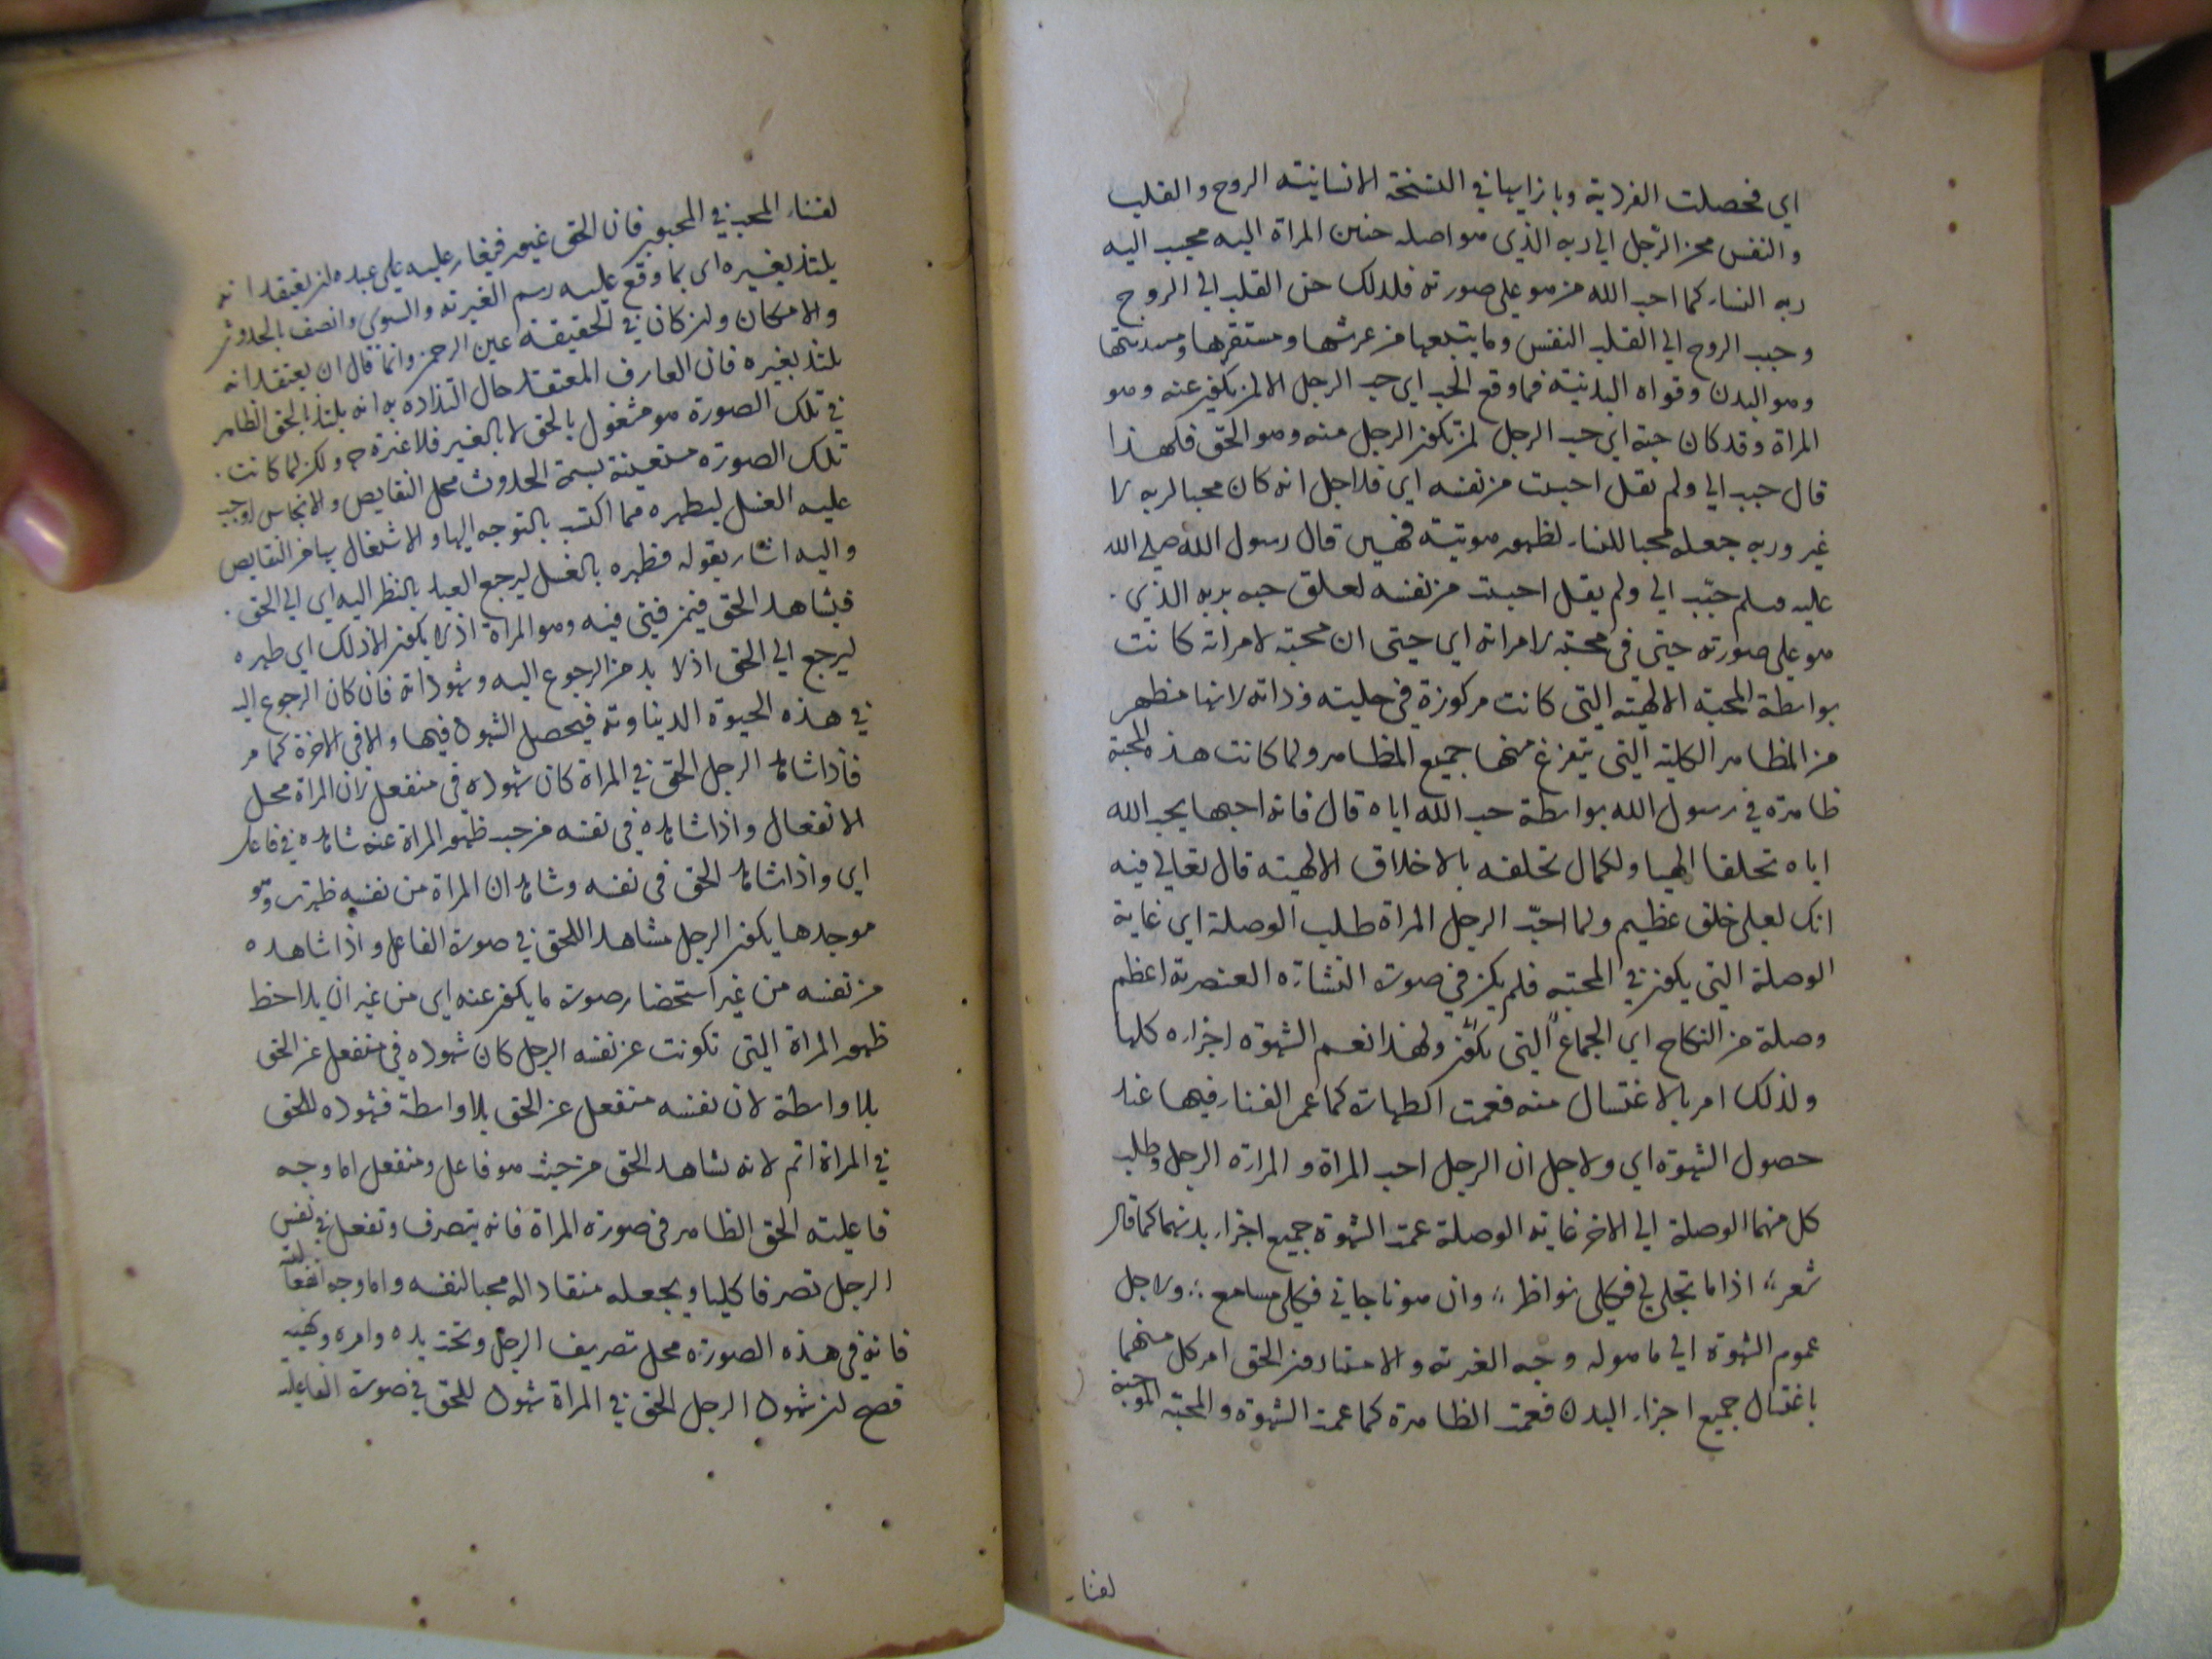 اي فحصلت الفردية وبازايها في النسخة الانسانية الروح والقلب
والنفس فحن الرجل الي ربه الذي هو اصله حنين المراة اليه فحبب اليه
ربه النساء كما احب الله من هو علي صورته فلذلك حن القلب الي الروح
وحبب الروح الي القلب النفس وما يتبعها من عرشها ومستقرها وسدنتها
وهو البدن وقواه البدنية فما وقع الحب اي حب الرجل الا لمن يكون عنه وهو
المراة وقد كان حبه اي حب الرجل لمن تكون الرجل منه وهو الحق فلهذا
قال حبب الي ولم يقل احببت من نفسه اي فلاجل انه كان محبا لربه لا
غير وربه جعله محبا للنساء لظهور هويته فهين قال رسول الله صلي الله
عليه وسلم حبب الي ولم يقل احببت من نفسه لعلق حبه بربه الذي
هو علي صورته حتي في محبته لامراته اي حتي ان محبته لامراته كانت
بواسطة المحبة الالهية التي كانت مركوزة في جليته وذاته لانها مظهر
من المظاهر الكلية التي يتفرغ منها جميع المظاهر ولما كانت هذه المحبة
ظاهرة في رسول الله بواسطة حب الله اياه قال فانه احبها بحب الله
اياه تخلقا الهيا ولكمال تخلقه بالاخلاق الالهية قال تعالي فيه
انك لعلي خلق عظيم ولما احب الرجل المراة طلب الوصلة اي غاية
الوصلة التي يكون في المحبة فلم يكن في صورة النشاءة العنصرية اعظم
وصلة من النكاح اي الجماع التي يكون ولهذا تعم الشهوة اجزاءه كلها
ولذلك امر بالاغتسال منه فعمت الطهارة كما عمر الفناء فيها عند
حصول الشهوة اي ولاجل ان الرجل احب المراة والمراة الرجل وطلب
كل منهما الوصلة الي الاخر غاية الوصلة عمت الشهوة جميع اجزاء بدنهما كما قال
شعر اذا ما تجلي لي فكلي نواظر وان هو ناجاني فكلي مسامع ولاجل
عموم الشهوة الي ما هوله وجه الغيرية والامتياز من الحق امر كل منهما
باغتسال جميع اجزاء البدن فعمت الظاهرة كما عمت الشهوة والمحبة الموجبة
لفناء
لفناء المحب في المحبوب فان الحق غيور فيغار عليه علي عبده ان يعتقد انه
يلتذ بغيره اي بما وقع عليه رسم الغيرية والسوي واتصف بالحدوث
والامكان وان كان في الحقيقة عين الرحمن وانما قال ان يعتقد انه
يلتذ بغيره فان العارف المعتقد حال التذاذه به انه يلتذ بالحق الظاهر
في تلك الصورة هو مشغول بالحق لا بالغير فلا غيرة ح ولكن لما كانت
تلك الصورة متعينة بسمة الحدوث محل النقايص والانجاس اوجب
عليه الغسل ليطهره مما اكتسب بالتوجه اليها والاشتغال بها من النقايص
واليه اشار بقوله فطهره بالغسل ليرجع العبد بالنظر اليه اي الي الحق
فيشاهد الحق فيمن فني فيه وهو المراة اذ لا يكون الا ذلك اي طهره
ليرجع الي الحق اذ لا بد من الرجوع اليه وشهود ذاته فان كان الرجوع اليه
في هذه الحيوة الدنياوية فيحصل الشهود فيها والا في الاخرة كما مر
فاذا شاهد الرجل الحق في المراة كان شهوده في منفعل لان المراة محل
الانفعال واذا شاهده في نفسه من حيث ظهور المراة عنه شاهده في فاعل
اي واذا شاهد الحق في نفسه وشاهد ان المراة من نفسه ظهرت وهو
موجدها يكون الرجل مشاهدا للحق في صورة الفاعل واذا شاهده
من نفسه من غير استحضار صورة ما يكون عنه اي من غير ان يلاحظ
ظهور المراة التي تكونت عن نفسه الرجل كان شهوده في منفعل عن الحق
بلا واسطة لان نفسه منفعل عن الحق بلا واسطة فشهوده للحق
في المراة اتم لانه يشاهد الحق من حيث هو فاعل ومنفعل اما وجه
فاعليته الحق الظاهر في صورة المراة فانه يتصرف وتفعل في نفس
الرجل تصرفا كليا ويجعله منقادا له محبا لنفسه واما وجه انفعاليته
فانه في هذه الصورة محل تصريف الرجل وتحت يده وامره ونهيه
فصح ان شهود الرجل الحق في المراة شهود للحق في صورة الفاعلية